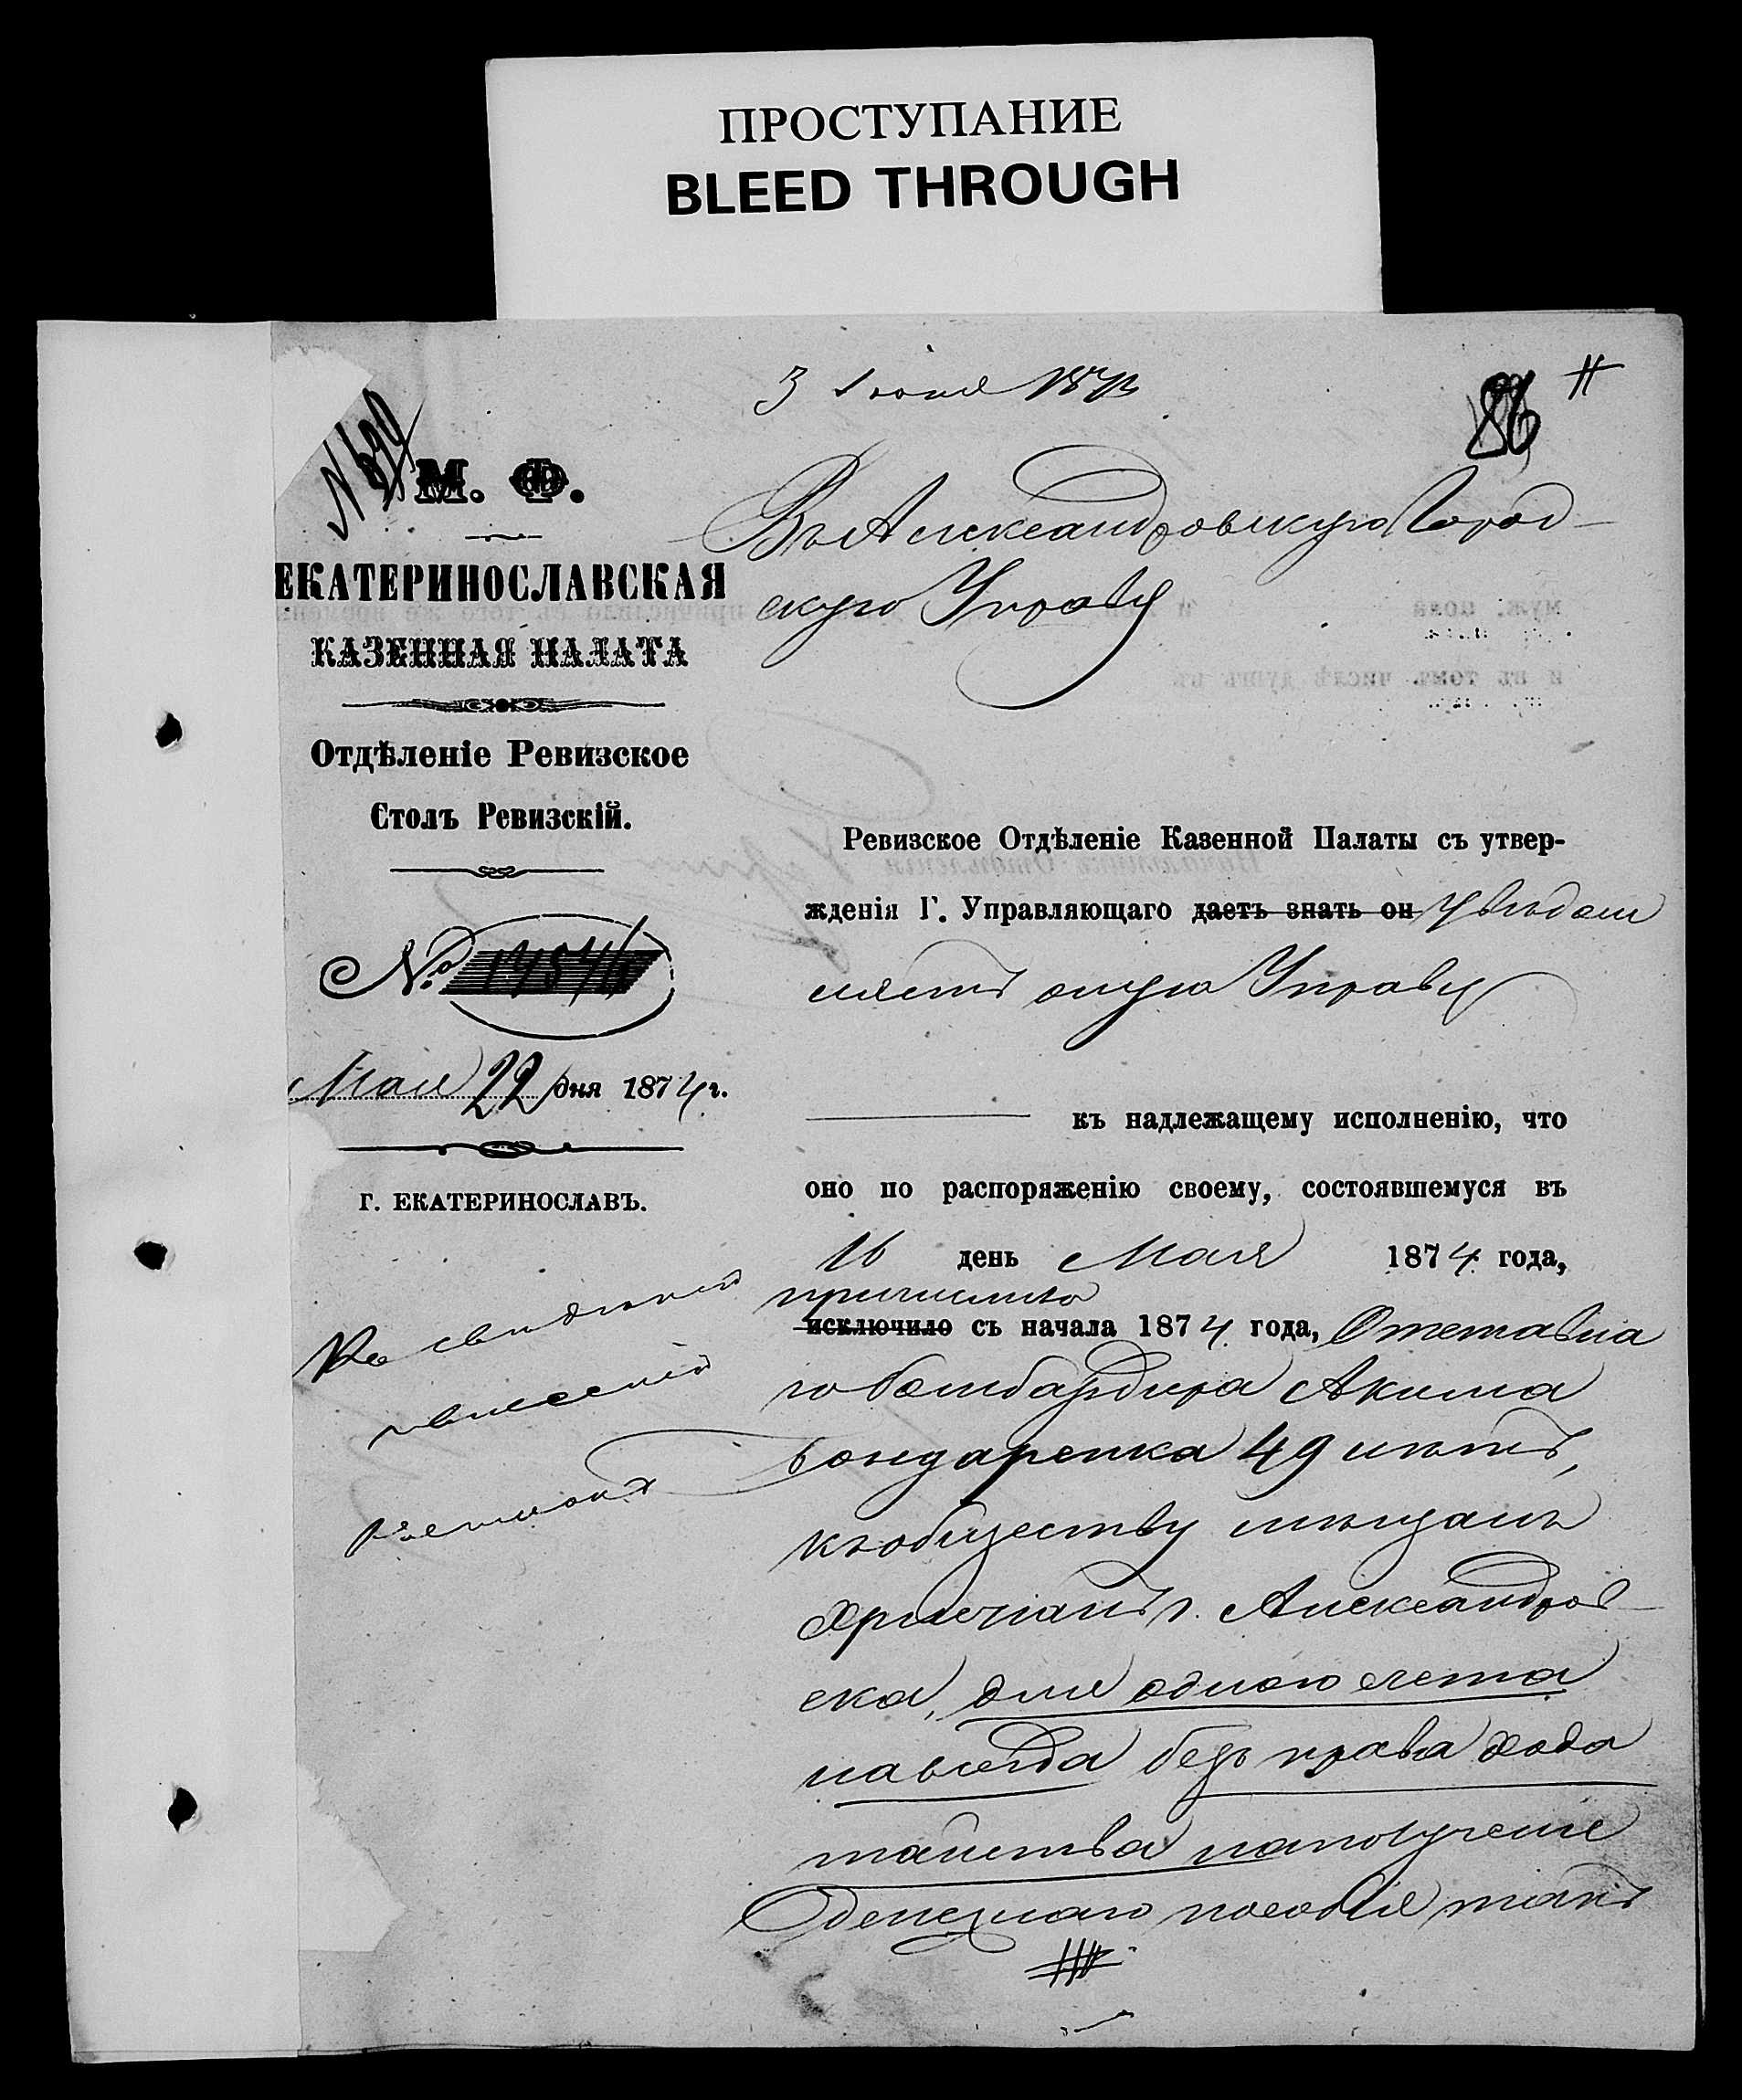 ПРОСТУПАНИЕ
BLEED THROUGH
3 Іюня
86
М. Ф.
ЕКАТЕРИНОСЛАВСКАЯ
КАЗЕННАЯ ПАЛАТА
Отдѣленіе Ревизское
Столъ Ревизскій.
№ 14546
Мая 22 дня 1874 г.
Г. ЕКАТЕРИНОСЛАВЪ.
Въ Александровскую Город-
скую Управу
Ревизское Отдѣленіе Казенной Палаты съ утвер-
жденія Г. Управляющаго даетъ знать он увѣдом
ляетъ оную Управу
къ надлежащему исполненію, что
оно по распоряженію своему, состоявшемуся въ
16 день Мая 1874 года,
причислило
исключило съ начала 1874 года, Отставна
го бомбардира Акима
Бондаренка 49 лѣтъ,
къ обществу мѣщанъ
христіанъ г. Александров-
ска, для одного счета
навсегда безъ права хода
тайства на полученіе
денежнаго пособія такъ